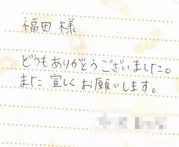 福田 様
どうもありがとうございました。
また 宜しくお願いします。